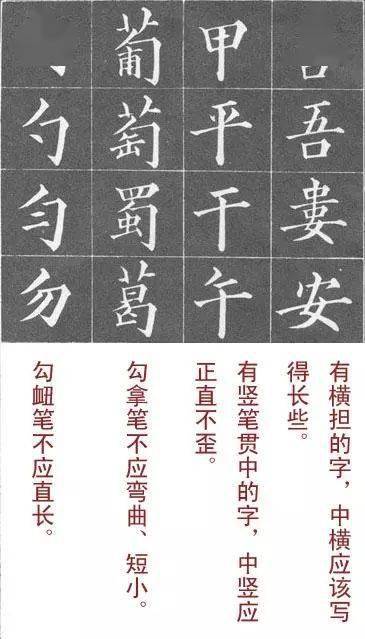 吾婁安
甲平干午
葡萄蜀葛
勺匀勿
有横担的字，中横应该写
得长些。
有竖笔贯中的字，中竖应
正直不歪。
勾拿笔不应弯曲、短小。
勾衄笔不应直长。